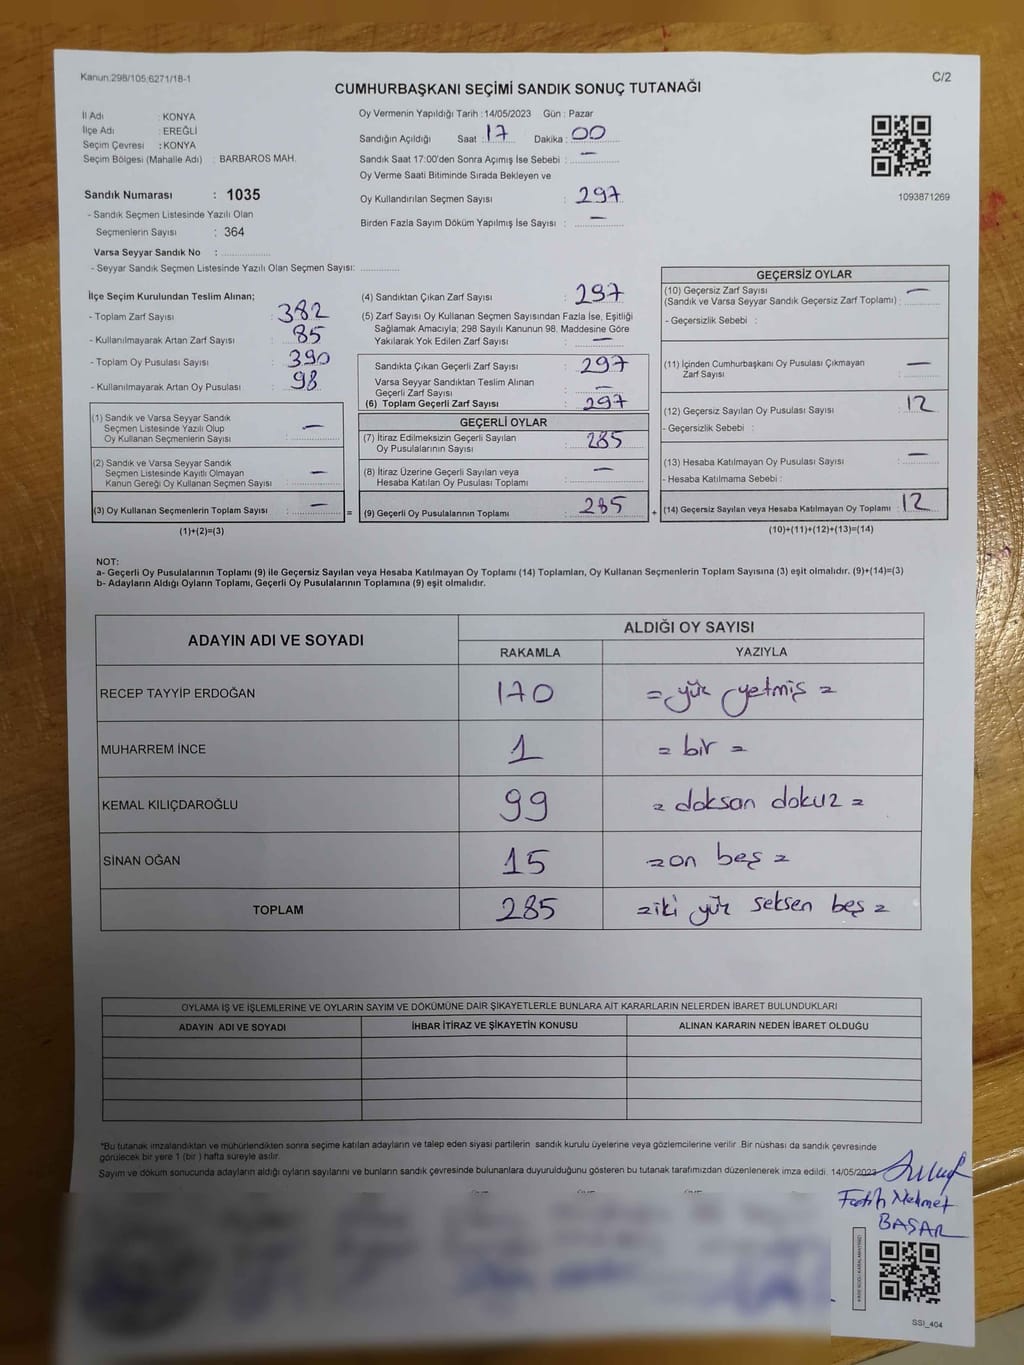 Kanun:298/105,6271/18-1
C/2
CUMHURBAŞKANI SEÇİMİ SANDIK SONUÇ TUTANAĞI
İl Adı : KONYA
İlçe Adı : EREĞLİ
Seçim Çevresi : KONYA
Seçim Bölgesi (Mahalle Adı) : BARBAROS MAH.
Sandık Numarası : 1035
- Sandık Seçmen Listesinde Yazılı Olan
Seçmenlerin Sayısı : 364
Varsa Seyyar Sandık No :
- Seyyar Sandık Seçmen Listesinde Yazılı Olan Seçmen Sayısı:
Oy Vermenin Yapıldığı Tarih : 14/05/2023 Gün : Pazar
Sandığın Açıldığı Saat : 17 Dakika : 00
Sandık Saat 17:00'den Sonra Açımış İse Sebebi : —
Oy Verme Saati Bitiminde Sırada Bekleyen ve
Oy Kullandırılan Seçmen Sayısı : 297
Birden Fazla Sayım Döküm Yapılmış İse Sayısı : —
1093871269
İlçe Seçim Kurulundan Teslim Alınan;
- Toplam Zarf Sayısı : 382
- Kullanılmayarak Artan Zarf Sayısı : 85
- Toplam Oy Pusulası Sayısı : 390
- Kullanılmayarak Artan Oy Pusulası : 98
(1) Sandık ve Varsa Seyyar Sandık
Seçmen Listesinde Yazılı Olup
Oy Kullanan Seçmenlerin Sayısı : —
(2) Sandık ve Varsa Seyyar Sandık
Seçmen Listesinde Kayıtlı Olmayan
Kanun Gereği Oy Kullanan Seçmen Sayısı : —
(3) Oy Kullanan Seçmenlerin Toplam Sayısı : — =
(1)+(2)=(3)
(4) Sandıktan Çıkan Zarf Sayısı : 297
(5) Zarf Sayısı Oy Kullanan Seçmen Sayısından Fazla İse, Eşitliği
Sağlamak Amacıyla; 298 Sayılı Kanunun 98. Maddesine Göre
Yakılarak Yok Edilen Zarf Sayısı : —
Sandıkta Çıkan Geçerli Zarf Sayısı : 297
Varsa Seyyar Sandıktan Teslim Alınan
Geçerli Zarf Sayısı : —
(6) Toplam Geçerli Zarf Sayısı : 297
GEÇERLİ OYLAR
(7) İtiraz Edilmeksizin Geçerli Sayılan
Oy Pusulalarının Sayısı : 285
(8) İtiraz Üzerine Geçerli Sayılan veya
Hesaba Katılan Oy Pusulası Toplamı : —
(9) Geçerli Oy Pusulalarının Toplamı : 285 +
GEÇERSİZ OYLAR
(10) Geçersiz Zarf Sayısı
(Sandık ve Varsa Seyyar Sandık Geçersiz Zarf Toplamı) : —
- Geçersizlik Sebebi :
(11) İçinden Cumhurbaşkanı Oy Pusulası Çıkmayan
Zarf Sayısı : —
(12) Geçersiz Sayılan Oy Pusulası Sayısı : 12
- Geçersizlik Sebebi :
(13) Hesaba Katılmayan Oy Pusulası Sayısı : —
- Hesaba Katılmama Sebebi :
(14) Geçersiz Sayılan veya Hesaba Katılmayan Oy Toplamı : 12
(10)+(11)+(12)+(13)=(14)
NOT:
a- Geçerli Oy Pusulalarının Toplamı (9) ile Geçersiz Sayılan veya Hesaba Katılmayan Oy Toplamı (14) Toplamları, Oy Kullanan Seçmenlerin Toplam Sayısına (3) eşit olmalıdır. (9)+(14)=(3)
b- Adayların Aldığı Oyların Toplamı, Geçerli Oy Pusulalarının Toplamına (9) eşit olmalıdır.
ADAYIN ADI VE SOYADI ALDIĞI OY SAYISI
RAKAMLA YAZIYLA
RECEP TAYYİP ERDOĞAN 170 = yüz yetmiş =
MUHARREM İNCE 1 = bir =
KEMAL KILIÇDAROĞLU 99 = doksan dokuz =
SİNAN OĞAN 15 = on beş =
TOPLAM 285 = iki yüz seksen beş =
OYLAMA İŞ VE İŞLEMLERİNE VE OYLARIN SAYIM VE DÖKÜMÜNE DAİR ŞİKAYETLERLE BUNLARA AİT KARARLARIN NELERDEN İBARET BULUNDUKLARI
ADAYIN ADI VE SOYADI İHBAR İTİRAZ VE ŞİKAYETİN KONUSU ALINAN KARARIN NEDEN İBARET OLDUĞU
*Bu tutanak imzalandıktan ve mühürlendikten sonra seçime katılan adayların ve talep eden siyasi partilerin sandık kurulu üyelerine veya gözlemcilerine verilir. Bir nüshası da sandık çevresinde
görülecek bir yere 1 (bir) hafta süreyle asılır.
Sayım ve döküm sonucunda adayların aldığı oyların sayılarını ve bunların sandık çevresinde bulunanlara duyurulduğunu gösteren bu tutanak tarafımızdan düzenlenerek imza edildi. 14/05/2023
Fatih Mehmet
BAŞAR
SSİ_404